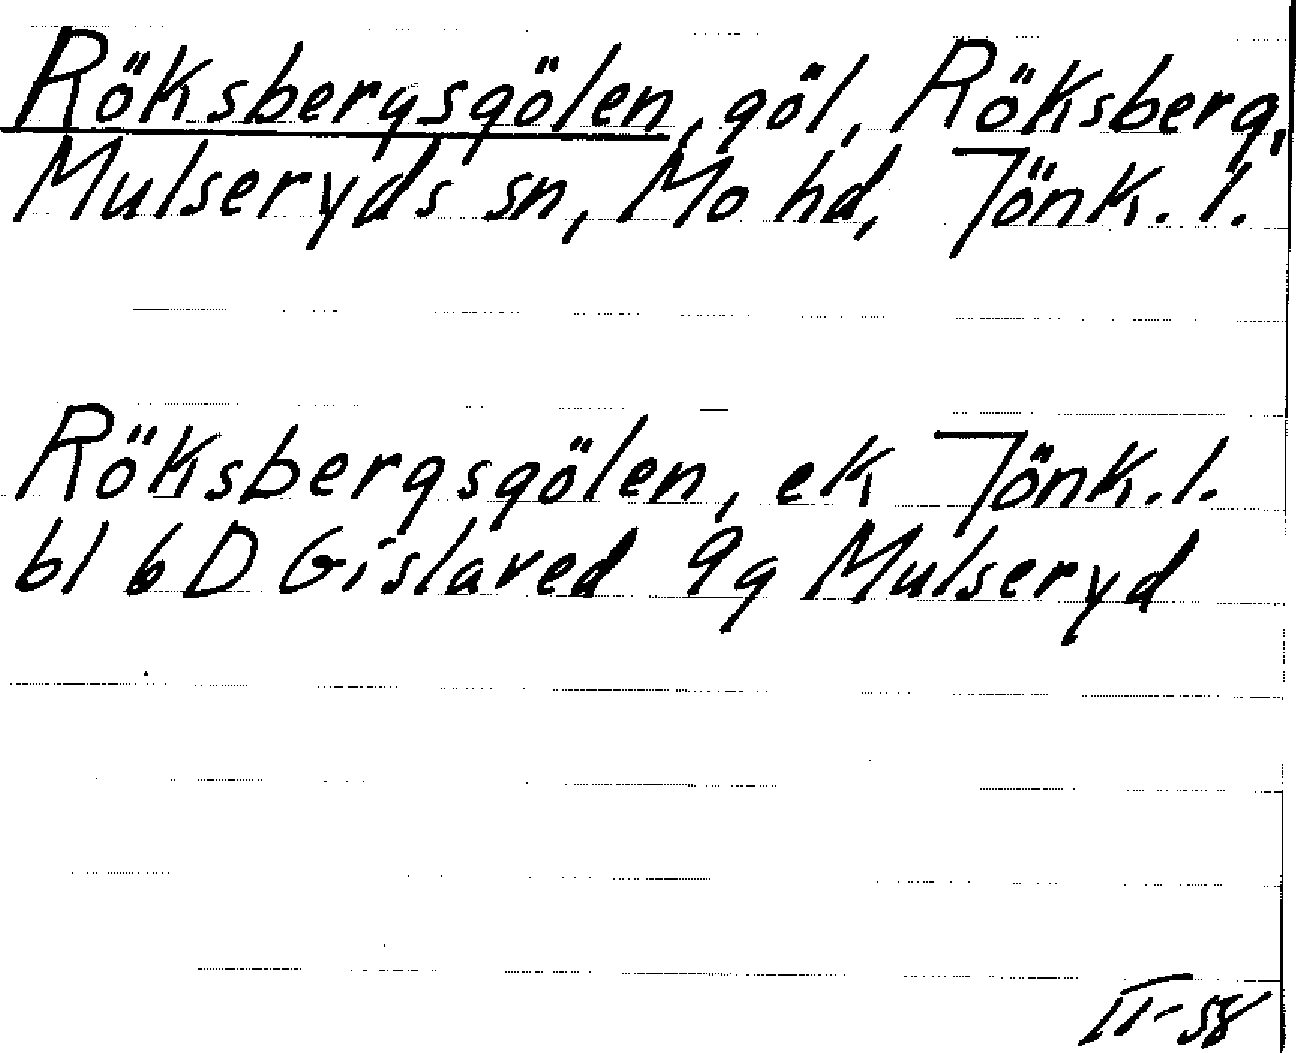 Röksbergsgölen, göl, Röksberg,
Mulseryds sn, Mo hd, Jönk. l.
Röksbergsgölen, ek Jönk. l.
bl 6 D Gislaved 9g Mulseryd
II-58